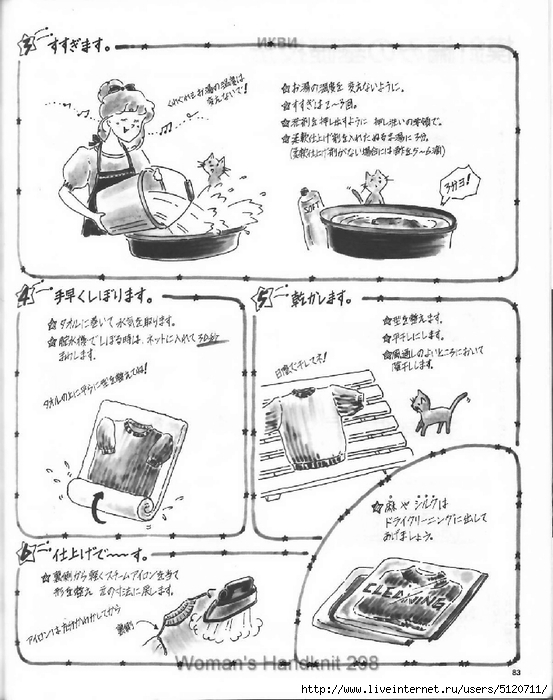 3 すすぎます。
くれぐれもお湯の温度は
変えないで!
☆お湯の温度を変えないように。
☆すすぎは2〜3回。
☆洗剤を押し出すように押し洗いの要領で。
☆柔軟仕上げ剤を入れたぬるま湯に3分。
(柔軟仕上げ剤がない場合には酢を5〜6滴)
SOFT
3分ヨ!
4 手早くしぼります。
☆タオルに巻いて水気を取ります。
☆脱水機でしぼる時は、ネットに入れて30秒
まわします。
タオルの上に平らに型を整えてね!
5 乾かします。
☆型を整えます。
☆平干しにします。
☆風通しのよいところにおいて
陰干しします。
日陰で干してネ!
☆麻やシルクは
ドライクリーニングに出して
あげましょう。
CLEANING
6 仕上げで〜〜す。
☆裏側から軽くスチームアイロンを当て
形を整え元の寸法に戻します。
アイロンは
裏側
Woman's Handknit 298
83
http://www.liveinternet.ru/users/5120711/